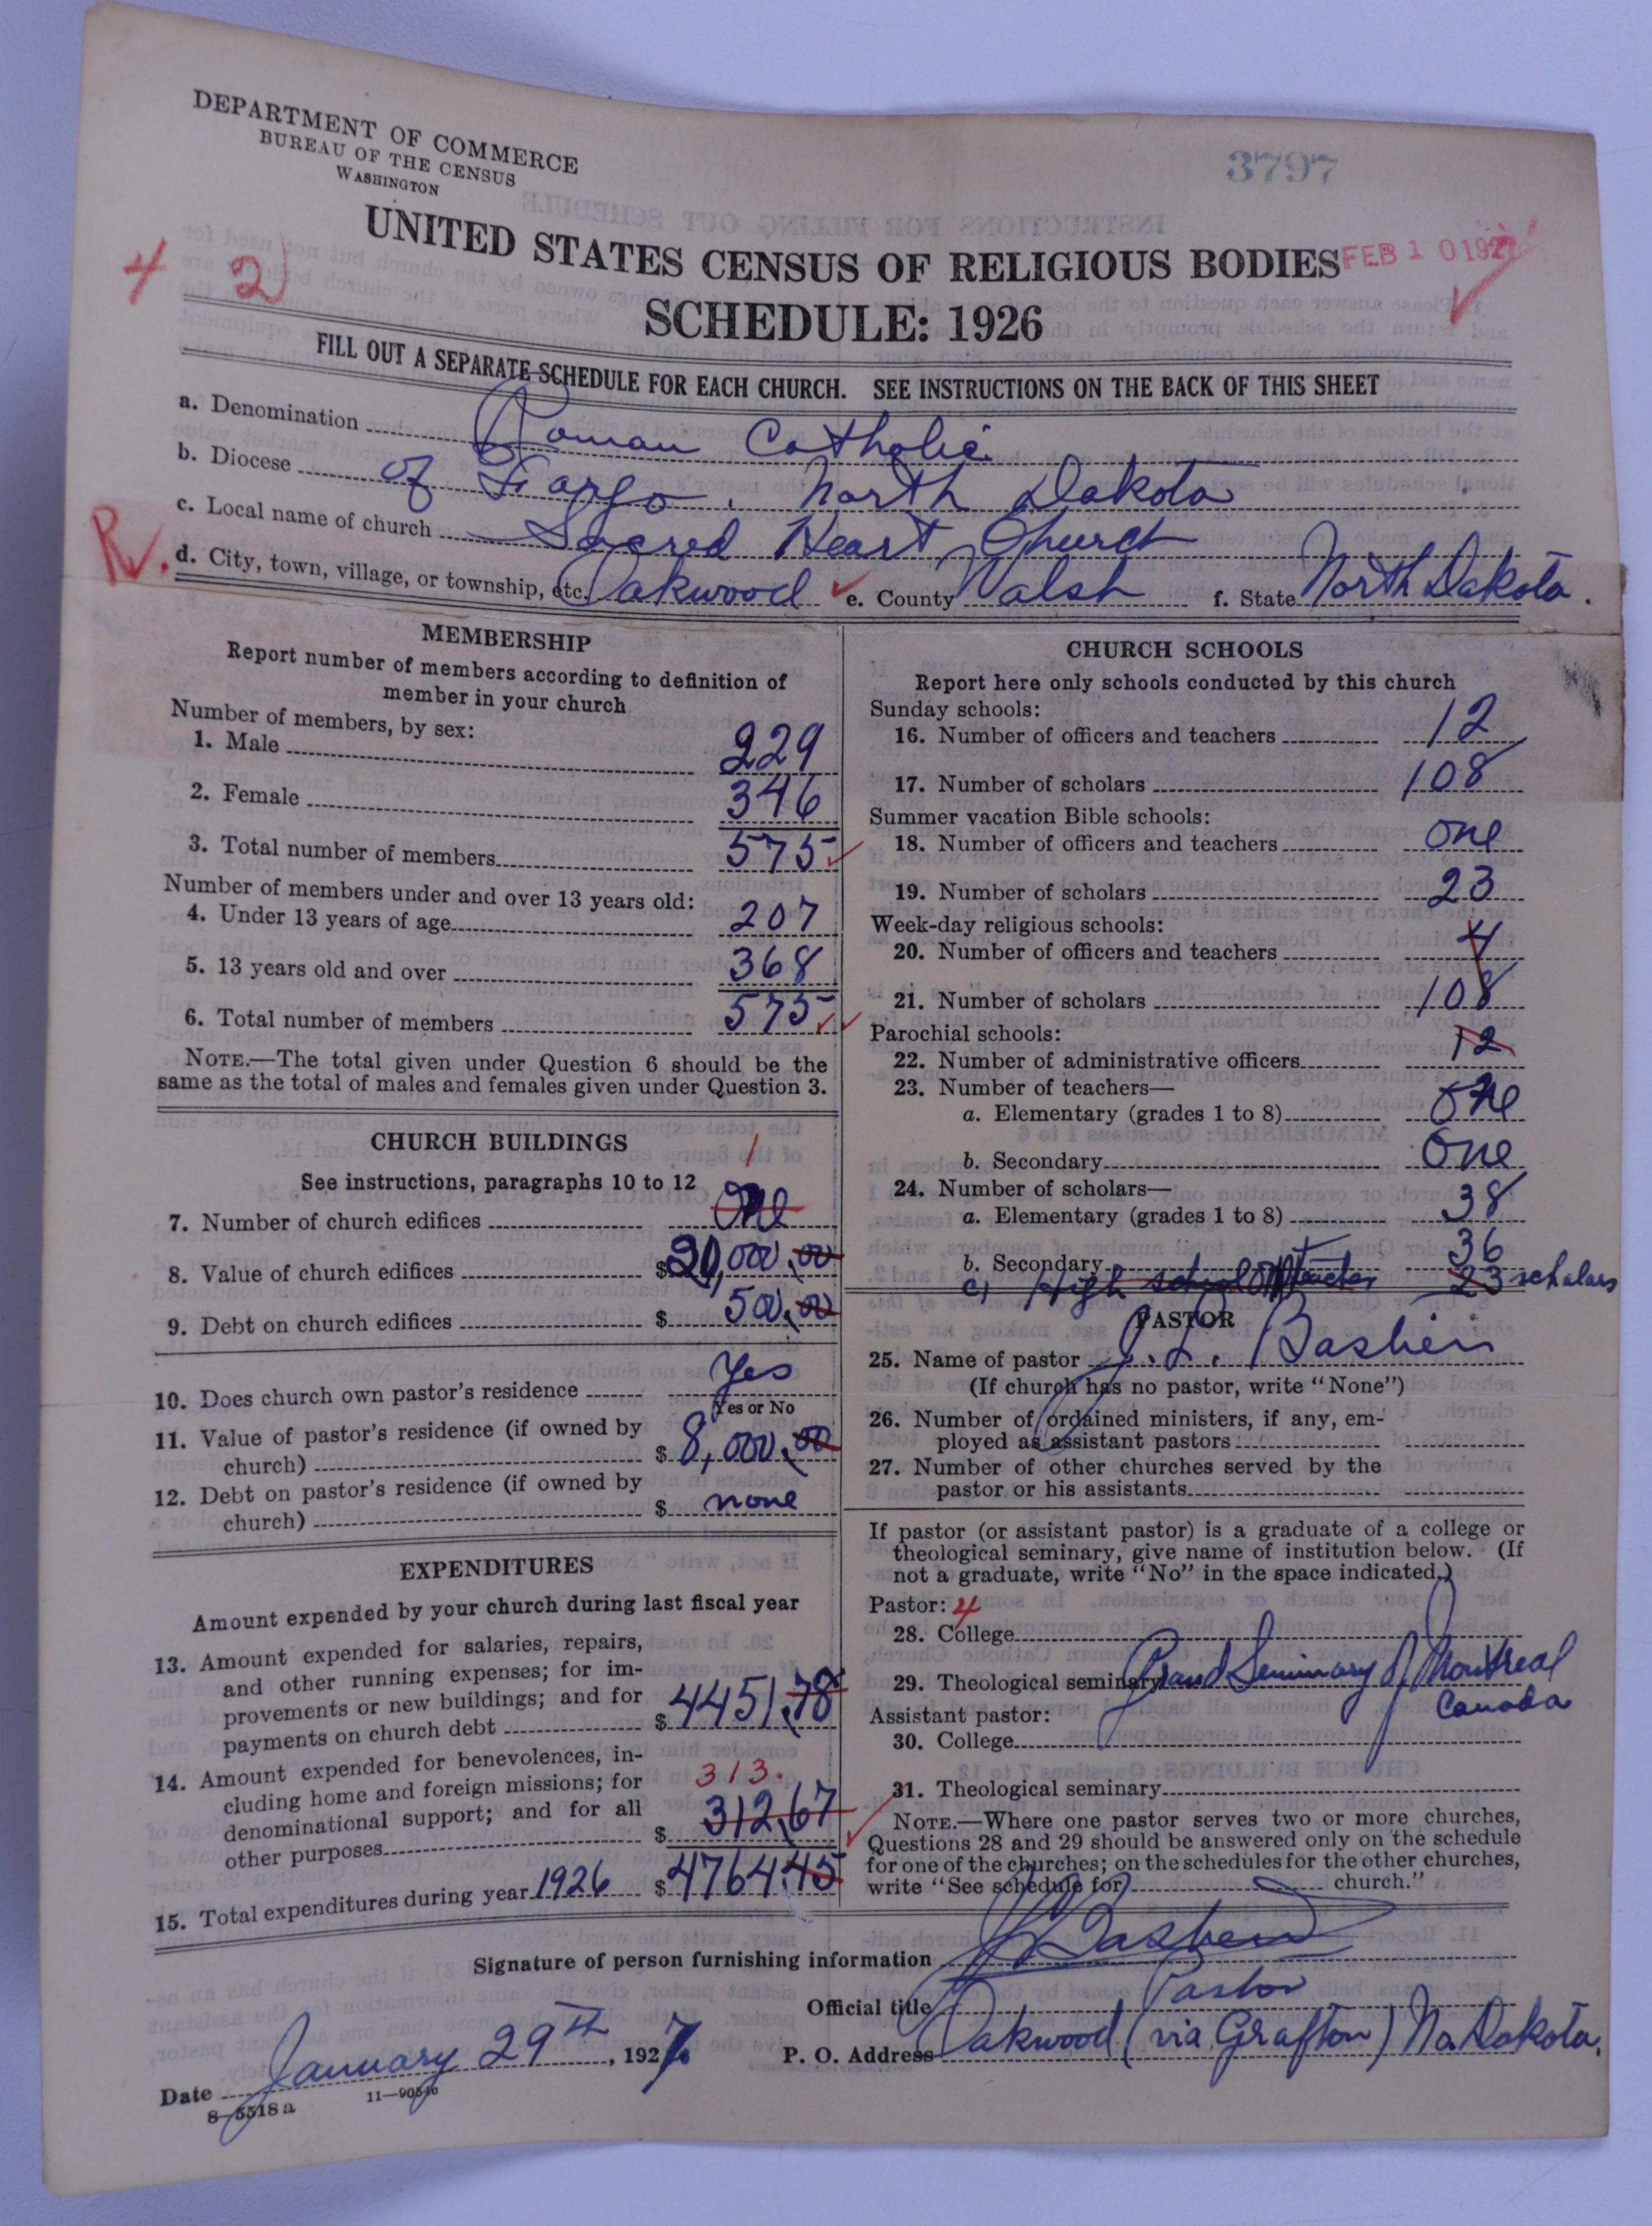 DEPARTMENT OF COMMERCE
BUREAU OF THE CENSUS
WASHINGTON
3797
UNITED STATES CENSUS OF RELIGIOUS BODIES
FEB 10 1927
4 2
SCHEDULE: 1926
FILL OUT A SEPARATE SCHEDULE FOR EACH CHURCH. SEE INSTRUCTIONS ON THE BACK OF THIS SHEET
a. Denomination Roman Catholic
b. Diocese of Fargo. North Dakota
c. Local name of church Sacred Heart Church
R.
d. City, town, village, or township, etc. Oakwood e. County Walsh f. State North Dakota.
MEMBERSHIP
Report number of members according to definition of
member in your church
Number of members, by sex:
1. Male 229
2. Female 346
3. Total number of members 575
Number of members under and over 13 years old:
4. Under 13 years of age 207
5. 13 years old and over 368
6. Total number of members 575
NOTE.—The total given under Question 6 should be the
same as the total of males and females given under Question 3.
CHURCH BUILDINGS
See instructions, paragraphs 10 to 12
1
7. Number of church edifices One
8. Value of church edifices $20,000.00
9. Debt on church edifices $ 500.00
10. Does church own pastor's residence Yes
Yes or No
11. Value of pastor's residence (if owned by
church) $ 8,000.00
12. Debt on pastor's residence (if owned by
church) $ none
EXPENDITURES
Amount expended by your church during last fiscal year
13. Amount expended for salaries, repairs,
and other running expenses; for im-
provements or new buildings; and for
payments on church debt $4451.78
14. Amount expended for benevolences, in-
cluding home and foreign missions; for
313.
denominational support; and for all
other purposes $ 312.67
15. Total expenditures during year 1926 $4764.45
CHURCH SCHOOLS
Report here only schools conducted by this church
Sunday schools:
16. Number of officers and teachers 12
17. Number of scholars 108
Summer vacation Bible schools:
18. Number of officers and teachers one
19. Number of scholars 23
Week-day religious schools:
20. Number of officers and teachers 4
21. Number of scholars 108
Parochial schools:
22. Number of administrative officers 12
23. Number of teachers—
a. Elementary (grades 1 to 8) one
b. Secondary One
24. Number of scholars—
a. Elementary (grades 1 to 8) 38
b. Secondary 36
c) High school One teacher 23 scholars
PASTOR
25. Name of pastor J. L. Bashien
(If church has no pastor, write "None")
26. Number of ordained ministers, if any, em-
ployed as assistant pastors
27. Number of other churches served by the
pastor or his assistants
If pastor (or assistant pastor) is a graduate of a college or
theological seminary, give name of institution below. (If
not a graduate, write "No" in the space indicated.)
Pastor: 4
28. College
29. Theological seminary Grand Seminary of Montreal
Canada
Assistant pastor:
30. College
31. Theological seminary
NOTE.—Where one pastor serves two or more churches,
Questions 28 and 29 should be answered only on the schedule
for one of the churches; on the schedules for the other churches,
write "See schedule for church."
Signature of person furnishing information
Official title Pastor
Date January 29th, 1927. P. O. Address Oakwood (via Grafton) No. Dakota.
8—5518 a 11—90546